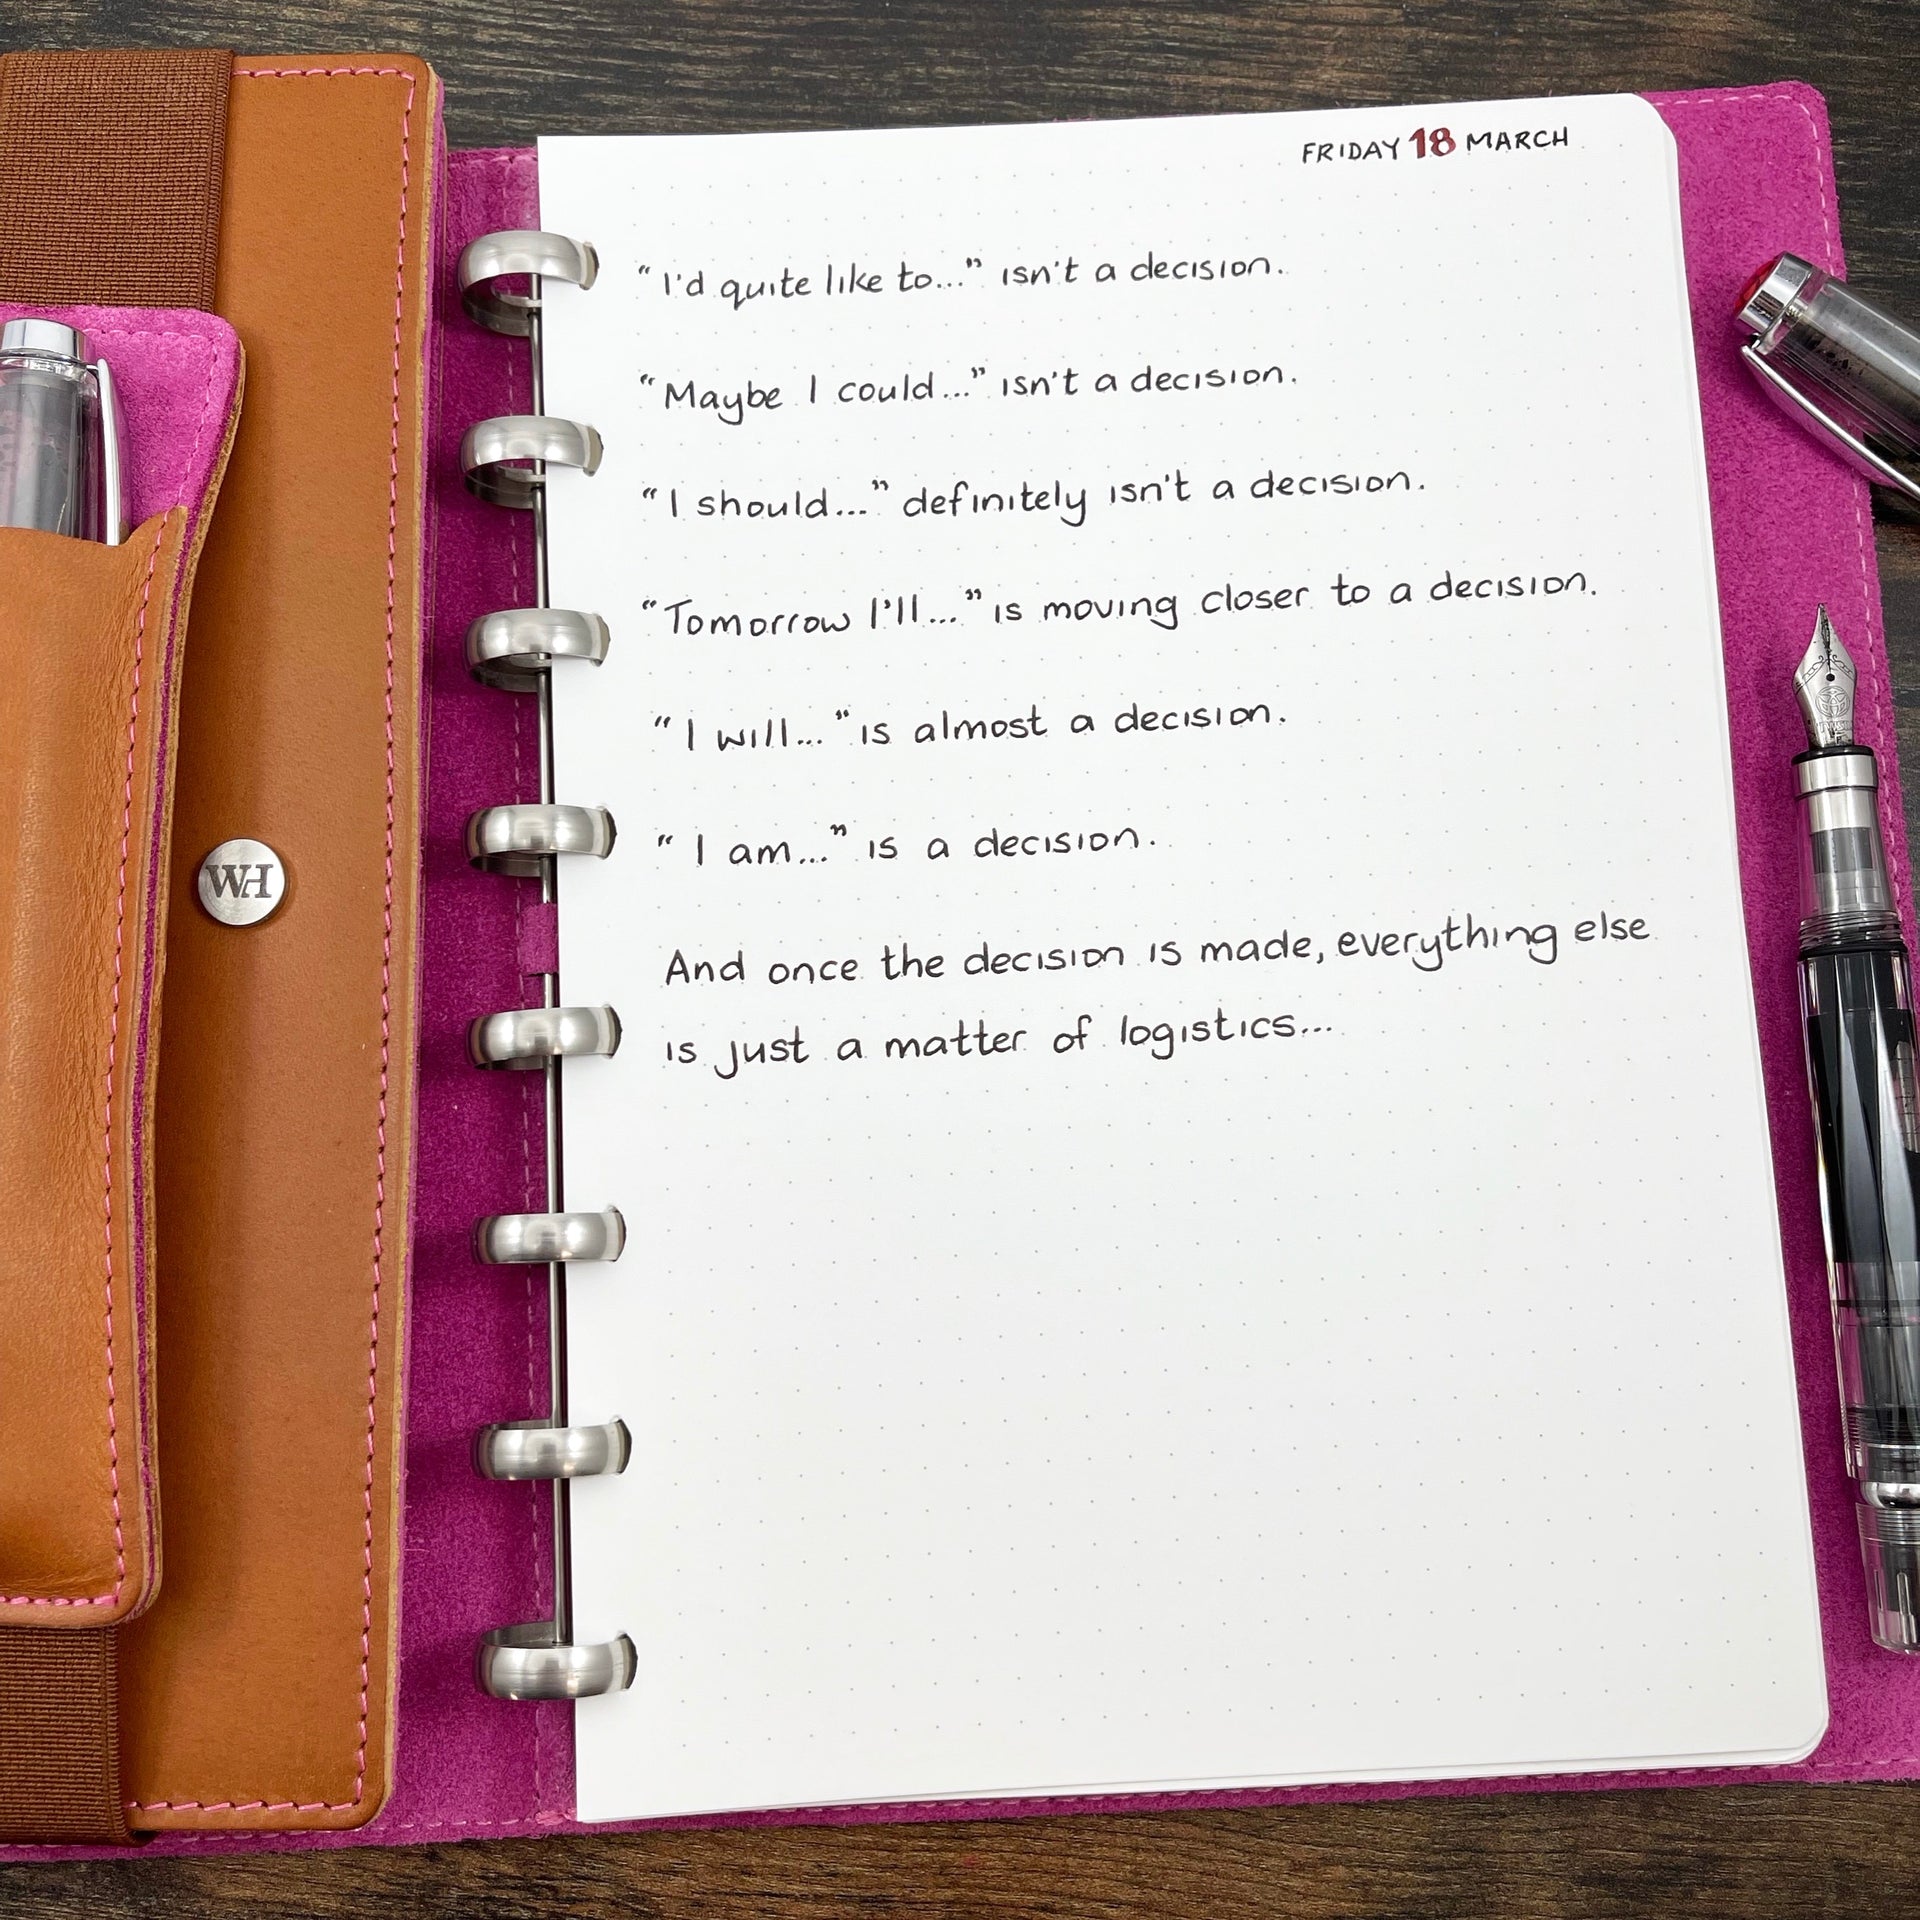 FRIDAY 18 MARCH
"I'd quite like to..." isn't a decision.
"Maybe I could..." isn't a decision.
"I should..." definitely isn't a decision.
"Tomorrow I'll..." is moving closer to a decision.
"I will..." is almost a decision.
"I am..." is a decision.
And once the decision is made, everything else
is just a matter of logistics...
WH